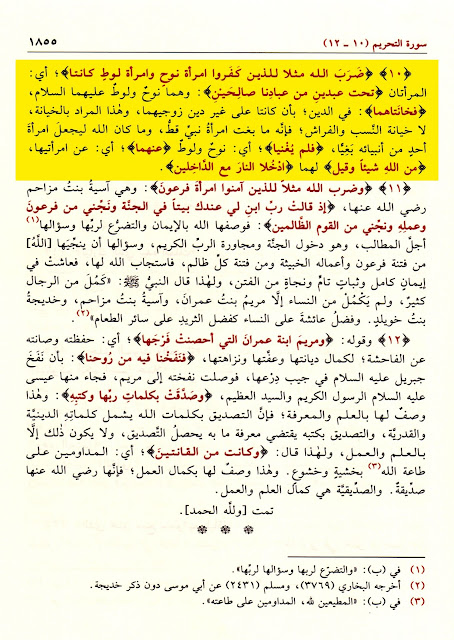 سورة التحريم (١٠ - ١٢)
١٨٥٥
﴿١٠﴾ ﴿ضَرَبَ الله مثلاً للذين كَفَروا امرأةَ نوحٍ وامرأةَ لوطٍ كانتا﴾؛ أي:
المرأتان ﴿تحت عبدينِ من عبادِنا صالحَيْنِ﴾: وهما نوحٌ ولوطٌ عليهما السلام،
﴿فخانَتاهما﴾: في الدين؛ بأن كانتا على غير دين زوجيهما، وهٰذا المراد بالخيانة،
لا خيانة النَّسب والفراش؛ فإنَّه ما بغت امرأةُ نبيٍّ قطُّ، وما كان الله ليجعلَ امرأةَ
أحدٍ من أنبيائه بَغِيًّا، ﴿فلم يُغْنيا﴾؛ أي: نوحٌ ولوطٌ ﴿عنهما﴾؛ أي: عن امرأتيها،
﴿من اللهِ شيئاً وقيل﴾ لهما ﴿ادْخُلا النارَ مع الدَّاخِلينَ﴾.
﴿١١﴾ ﴿وضرب الله مثلاً للذين آمنوا امرأةَ فرعونَ﴾: وهي آسيةُ بنتُ مزاحم
رضي الله عنها، ﴿إذ قالتْ ربِّ ابنِ لي عندك بيتاً في الجنَّة ونَجِّني من فرعونَ
وعملِهِ ونجِّني من القوم الظَّالمين﴾: فوصفها الله بالإيمان والتضرُّع لربِّها وسؤالها(١)
أجلَّ المطالب، وهو دخول الجنَّة ومجاورة الربِّ الكريم، وسؤالها أن ينجِّيَها [اللَّهُ]
من فتنة فرعون وأعماله الخبيثة ومن فتنة كلِّ ظالم، فاستجاب الله لها، فعاشتْ في
إيمانٍ كامل وثباتٍ تامٍّ ونجاةٍ من الفتن، ولهٰذا قال النبيُّ ﷺ: «كَمُلَ من الرجال
كثيرٌ، ولم يَكْمُلْ من النساء إلَّا مريمُ بنتُ عمرانَ، وآسيةُ بنتُ مزاحمٍ، وخديجةُ
بنتُ خويلدٍ. وفضلُ عائشةَ على النساء كفضل الثريدِ على سائر الطعام»(٢).
﴿١٢﴾ وقوله: ﴿ومريمَ ابنة عمرانَ التي أحصنتْ فَرْجَها﴾؛ أي: حفظته وصانته
عن الفاحشة؛ لكمال ديانتها وعفَّتها ونزاهتها، ﴿فنَفَخْنا فيه من رُوحنا﴾: بأن نَفَخَ
جبريل عليه السلام في جيب دِرْعها، فوصلت نفخته إلى مريم، فجاء منها عيسى
عليه السلام الرسول الكريم والسيد العظيم، ﴿وصَدَّقَتْ بكلماتِ ربِّها وكتبِهِ﴾: وهٰذا
وصفٌ لها بالعلم والمعرفة؛ فإنَّ التصديق بكلمات الله يشمل كلماتِهِ الدينيَّة
والقدريَّة، والتصديق بكتبه يقتضي معرفة ما به يحصلُ التَّصديق، ولا يكون ذٰلك إلَّا
بالعلم والعمل، ولهٰذا قال: ﴿وكانت من القانتينَ﴾؛ أي: المداومين على
طاعة الله(٣) بخشيةٍ وخشوع. وهٰذا وصفٌ لها بكمال العمل؛ فإنَّها رضي الله عنها
صدِّيقةٌ. والصدِّيقيَّة هي كمال العلم والعمل.
تمت [وللَّه الحمد].
* * *
(١) في (ب): «والتضرّع لربها وسؤالها لربّها».
(٢) أخرجه البخاري (٣٧٦٩)، ومسلم (٢٤٣١) عن أبي موسى دون ذكر خديجة.
(٣) في (ب): «المطيعين لله، المداومين على طاعته».